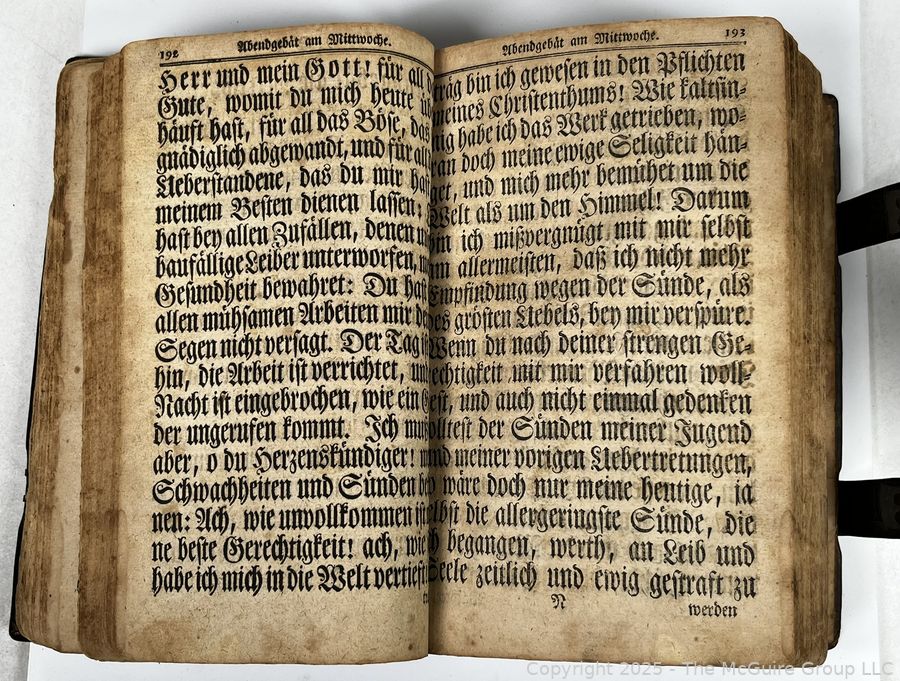 192
Abendgebät am Mittwoche.
Herr und mein Gott! für all
Güte, womit du mich heute
häuft hast, für all das Böse, das
gnädiglich abgewandt, und für all
Ueberstandene, das du mir hast
meinem Besten dienen lassen:
hast bey allen Zufällen, denen
baufällige Leiber unterworfen,
Gesundheit bewahret: Du hast
allen mühsamen Arbeiten mir
Segen nicht versagt. Der Tag
hin, die Arbeit ist verrichtet, und
Nacht ist eingebrochen, wie ein
der ungerufen kommt. Ich muß
aber, o du Herzenskündiger!
Schwachheiten und Sünden
nen: Ach, wie unvollkommen ist
ne beste Gerechtigkeit! ach, wie
habe ich mich in die Welt vertieft
193
Abendgebät am Mittwoche.
träg bin ich gewesen in den Pflichten
meines Christenthums! Wie kaltsin-
nig habe ich das Werk getrieben, wo-
ran doch meine ewige Seligkeit hän-
get, und mich mehr bemühet um die
Welt als um den Himmel! Darum
bin ich mißvergnügt mit mir selbst
am allermeisten, daß ich nicht mehr
Empfindung wegen der Sünde, als
des grösten Uebels, bey mir verspüre.
Wenn du nach deiner strengen Ge-
rechtigkeit mit mir verfahren woll-
test, und auch nicht einmal gedenken
solltest der Sünden meiner Jugend
und meiner vorigen Uebertretungen,
so wäre doch nur meine heutige, ja
selbst die allergeringste Sünde, die
ich begangen, werth, an Leib und
Seele zeitlich und ewig gestraft zu
N
werden
Copyright 2025 - The McGuire Group LLC